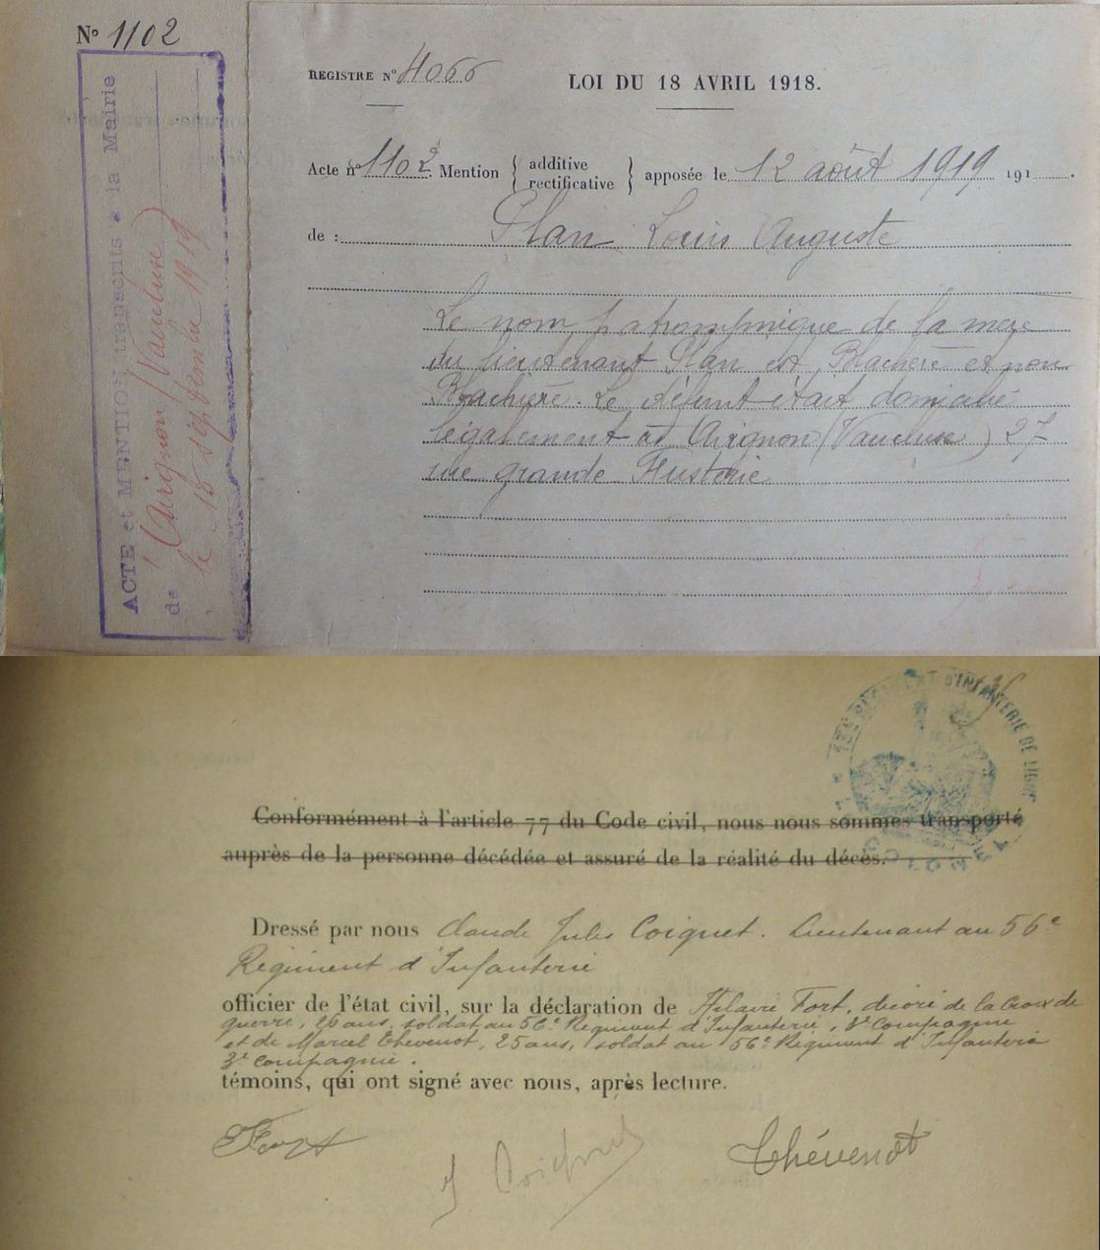 N° 1102
ACTE et MENTION transcrits à la Mairie
de Avignon (Vaucluse)
le 18 septembre 1919
REGISTRE N° 4066
LOI DU 18 AVRIL 1918.
Acte n° 1102. Mention { additive rectificative } apposée le 12 août 1919 191
de : Plan Louis Auguste
Le nom patronymique de la mère
du lieutenant Plan est Blachère et non
Blachière. Le défunt était domicilié
légalement à Avignon (Vaucluse) 27
rue grande Fusterie
REGIMENT D'INFANTERIE DE LIGNE
Conformément à l'article 77 du Code civil, nous nous sommes transporté
auprès de la personne décédée et assuré de la réalité du décès.
Dressé par nous Claude Jules Coiquet. Lieutenant au 56e
Régiment d'Infanterie
officier de l'état civil, sur la déclaration de Hilaire Fort, décoré de la Croix de
guerre, 26 ans, soldat au 56e Régiment d'Infanterie, 3e Compagnie
et de Marcel Thévenot, 25 ans, soldat au 56e Régiment d'Infanterie
3e Compagnie.
témoins, qui ont signé avec nous, après lecture.
Fort
J Coiquet
Thévenot